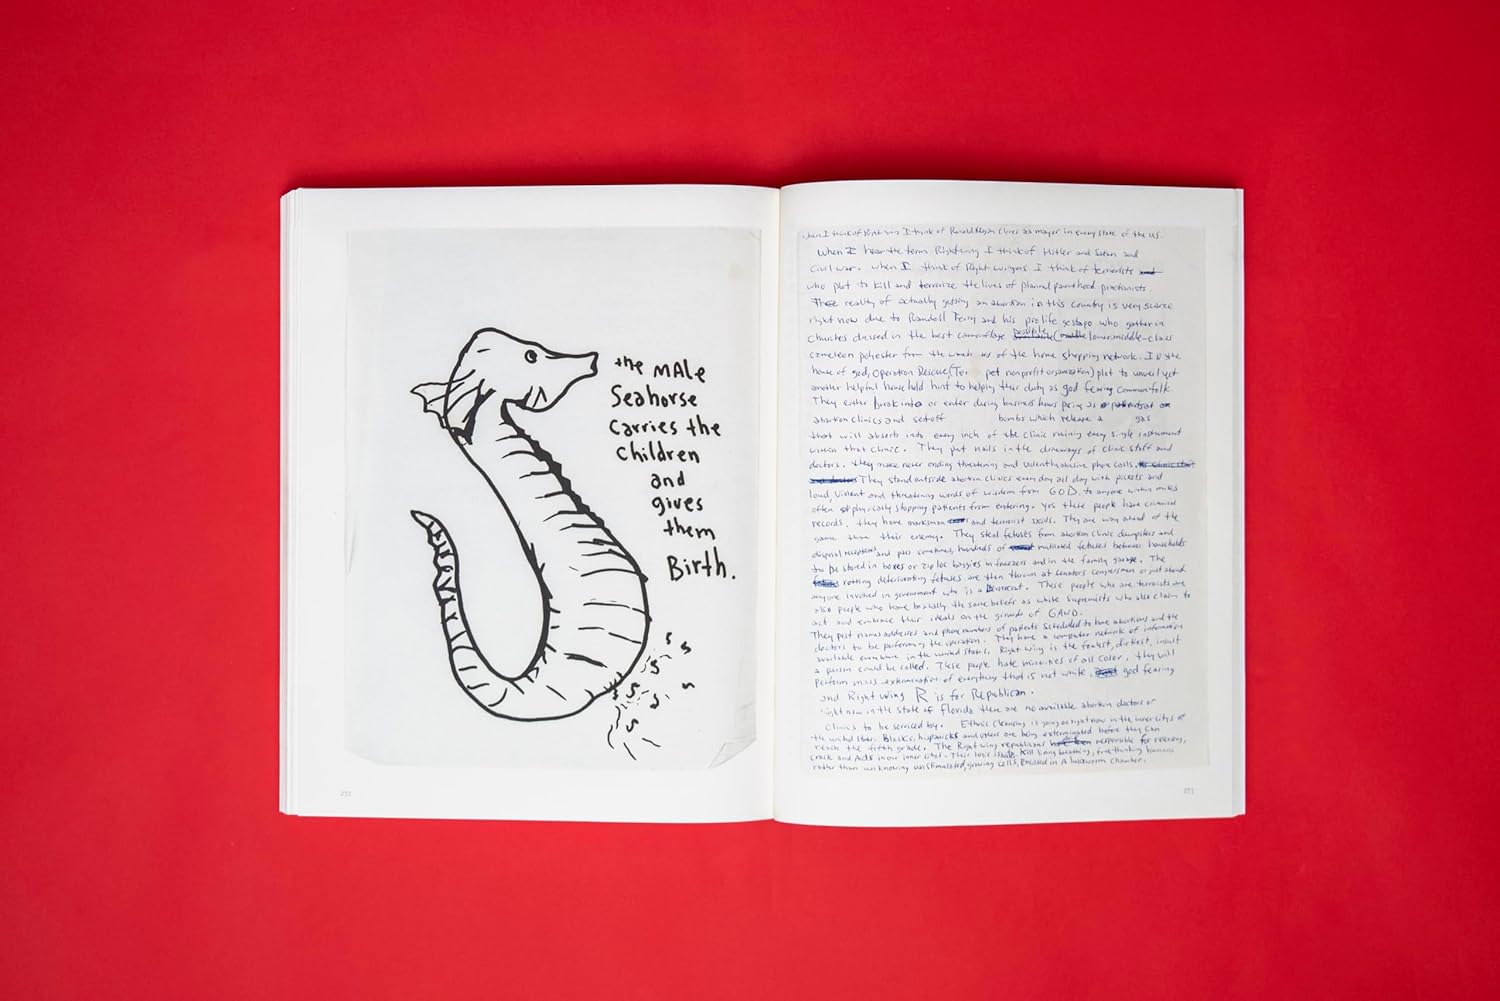 the MALe
Seahorse
carries the
children
and
gives
them
Birth.
272
when I think of Right wing I think of Ronald Reagan clones as mayor in every state of the U.S.
When I hear the term Right wing I think of Hitler and Satan and
Civil war. When I think of Right-wingers I think of terrorists
who plot to kill and terrorize the lives of planned parenthood practionists.
The reality of actually getting an abortion in this country is very scarce
right now due to Randall Terry and his prolife gestapo who gather in
churches dressed in the best camouflage possible, lower middle-class
cameleon polyester from the of the home shopping network. In the
house of god, Operation Rescue, (Ter pet nonprofit organization) plot to unveil yet
another helpful household hint to helping their duty as god fearing common folk
They either break into or enter during business hours posing as patients
abortion clinics and set off bombs which release a gas
that will absorb into every inch of the clinic ruining every single instrument
within that clinic. They put nails in the driveways of clinic staff and
doctors. they make never ending threatening and violently abusive phone calls.
They stand outside abortion clinics every day all day with pickets and
loud, violent and threatening words of wisdom from GOD. to anyone within miles
often physically stopping patients from entering. Yes these people have criminal
records. they have marksman and terrorist skills. They are way ahead of the
game than their enemy. They steal fetuses from abortion clinic dumpsters and
disposal receptors and pass sometimes, hundreds of mutilated fetuses between households
to be stored in boxes or ziploc baggies in freezers and in the family garage. The
rotting deteriorating fetuses are then thrown at senators congressmen or just about
anyone involved in government who is a Democrat. These people who are terrorists are
also people who have basically the same beliefs as white supremists who also claim to
act and embrace their ideals on the grounds of GAWD.
They post names addresses and phone numbers of patients scheduled to have abortions and the
doctors to be performing the operation. They have a computer network of information
available everywhere in the united states. Right wing is the foulest, dirtiest, insult
a person could be called. These people hate minorities of all color. they will
perform mass extermination of everything that is not white, god fearing
and Right wing R is for Republican.
right now in the state of Florida there are no available abortion doctors or
clinics to be serviced by. Ethnic cleansing is going on right now in the inner citys of
the united states. Blacks, hispanicks and others are being exterminated before they can
reach the fifth grade. The Right wing republicans responsible for releasing,
crack and Aids in our inner citys. Their logic is kill living breathing, free thinking humans
rather than unknowing unstimulated, growing cells, encased in A chamber.
273